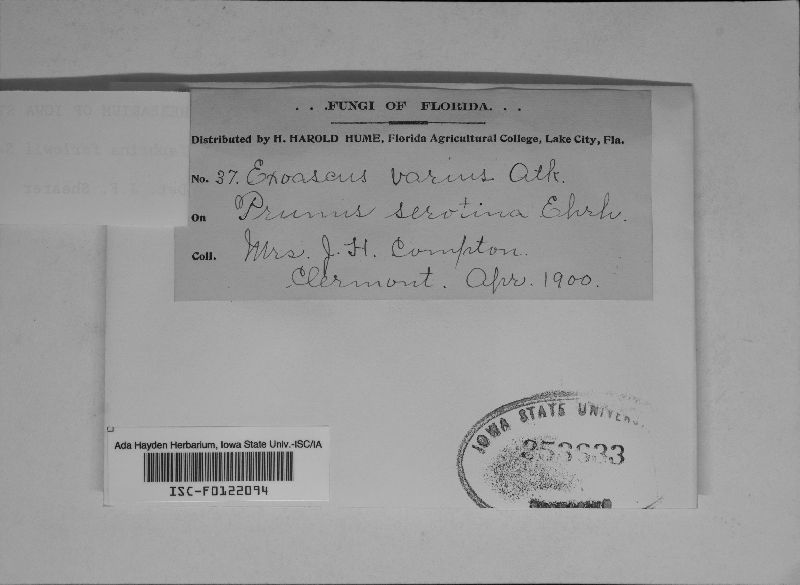 . . .FUNGI OF FLORIDA. . .
Distributed by H. HAROLD HUME, Florida Agricultural College, Lake City, Fla.
No. 37. Exoascus varius Atk.
On Prunus serotina Ehrh.
Coll. Mrs. J. H. Compton.
Clermont. Apr. 1900.
IOWA STATE UNIVERS
Ada Hayden Herbarium, Iowa State Univ.-ISC/IA
ISC-F0122094